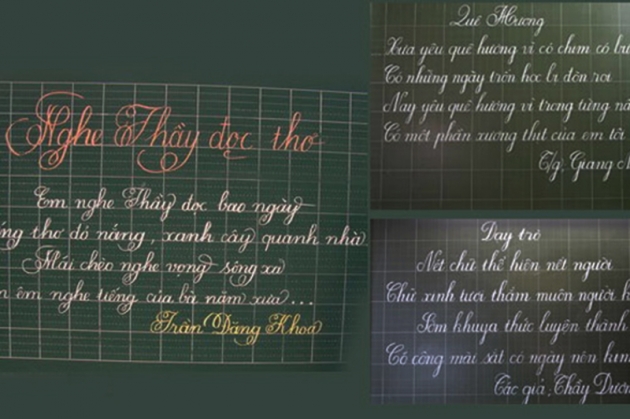 Nghe Thầy đọc thơ
Em nghe Thầy đọc bao ngày
ng thơ đỏ nắng, xanh cây quanh nhà
Mái chèo nghe vọng sông xa
êm nghe tiếng của bà năm xưa...
Trần Đăng Khoa
Quê Hương
Xưa yêu quê hương vì có chim có
Có những ngày trốn học bị đòn roi
Nay yêu quê hương vì trong từng
Có một phần xương thịt của em tôi
T/g: Giang
Dạy trò
Nét chữ thể hiện nết người
Chữ xinh tươi thắm muôn người
Sớm khuya thức luyện thành
Có công mài sắt có ngày nên kim
Tác giả: Thầy